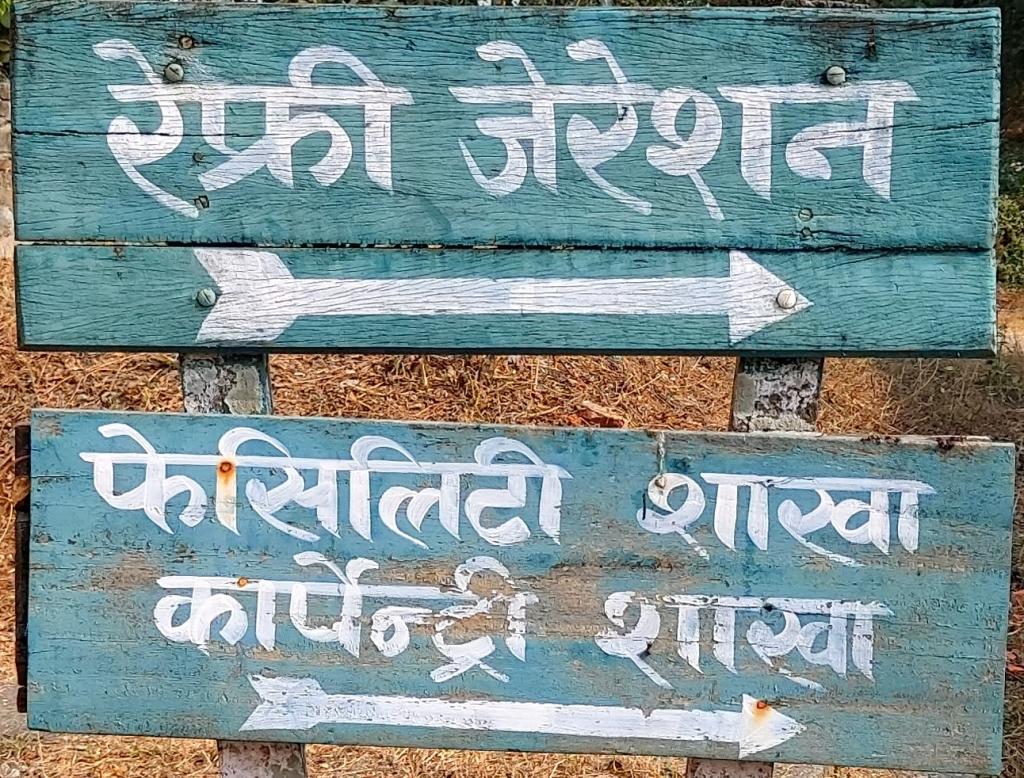 रेफ्री जेरेशन
फेसिलिटी शाखा
कार्पेन्ट्री शाखा